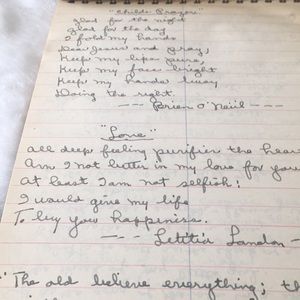 "Childs Prayer"
Glad for the night
Glad for the day
I fold my hands
Dear Jesus and pray,
Keep my lips pure,
Keep my face bright
Keep my hands busy
Doing the right.
--- Brian O'Neiil ---
"Love"
All deep feeling purifies the hear
Am I not better in my love for you
At least I am not selfish;
I would give my life
To buy you happiness.
--- Letitia Landon -
"The old believe everything; th